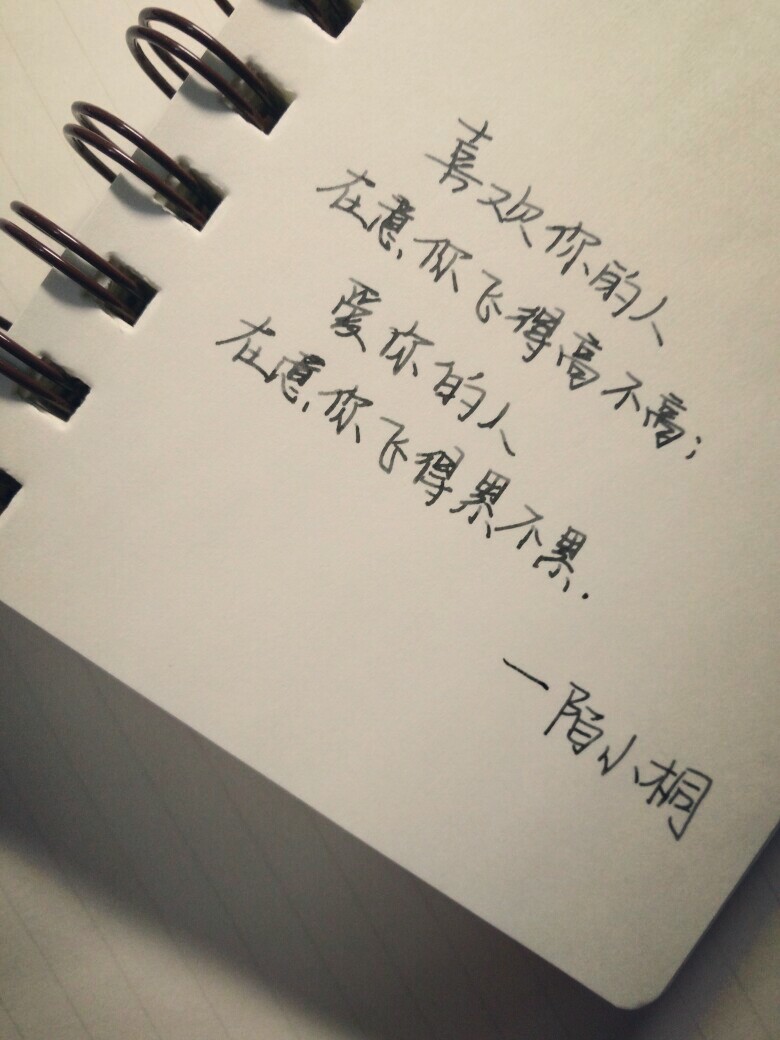 喜欢你的人
在意你飞得高不高;
爱你的人
在意你飞得累不累.
一陌小桐